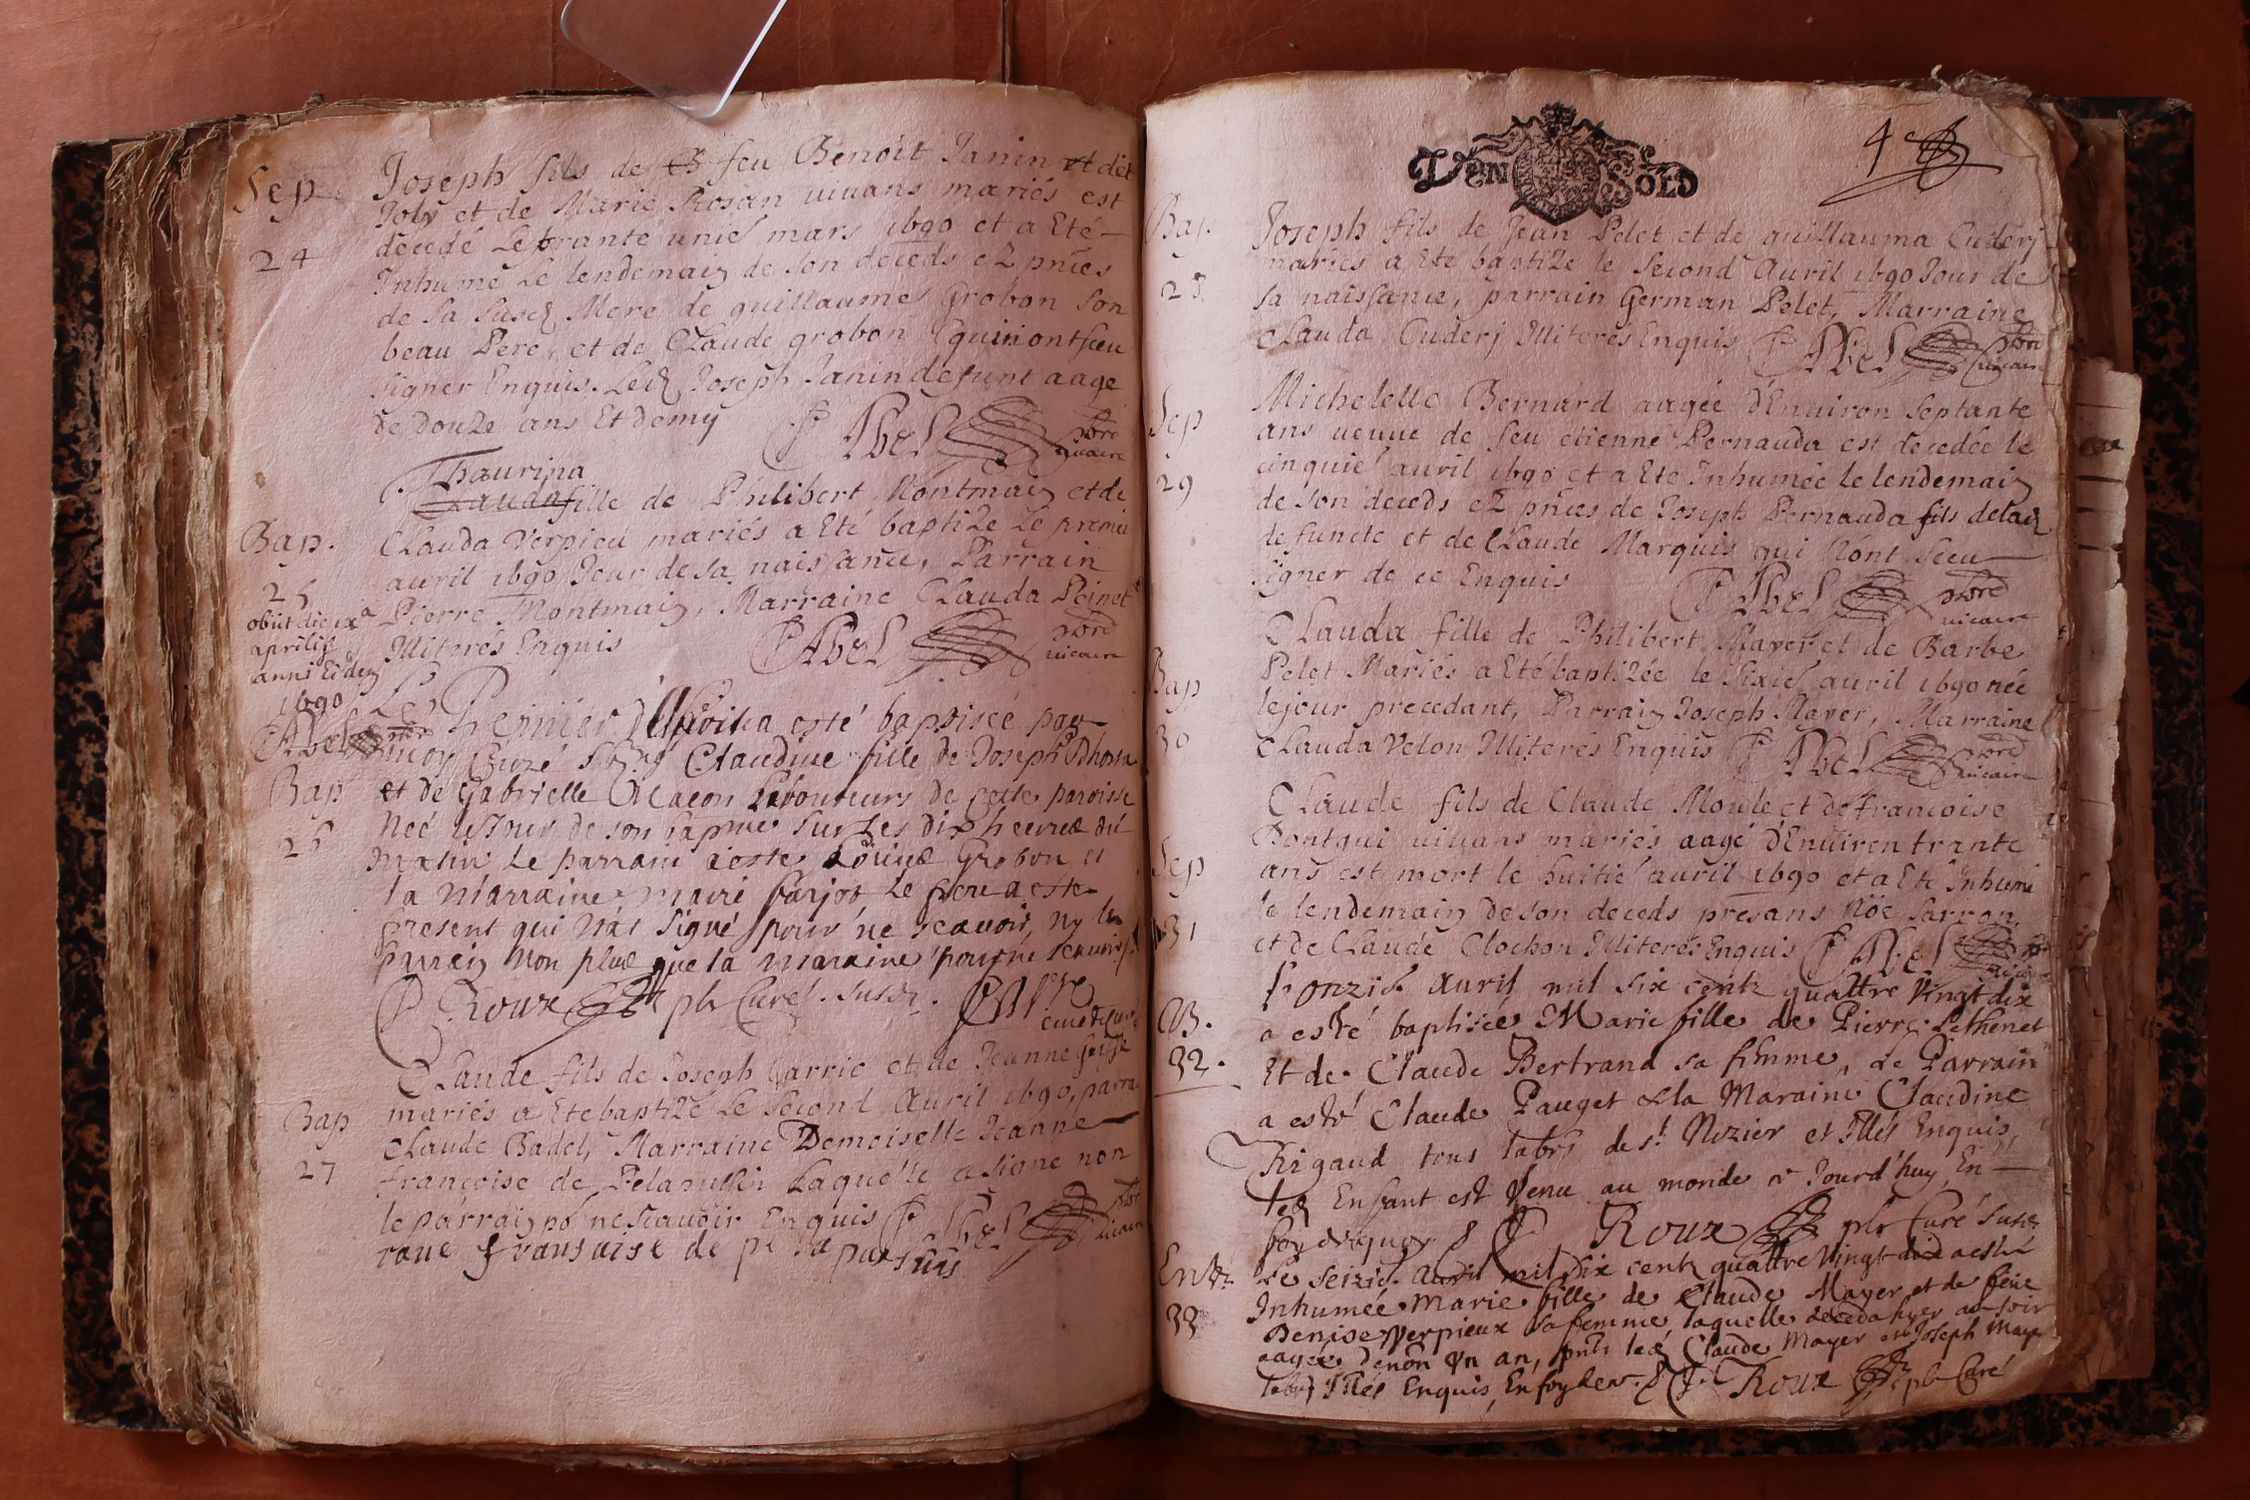 Sep.
24
Joseph fils de feu Benoit Janin et dit
Joly et de Marie Rosan vivans mariés est
decedé le trante unie mars 1690 et a Eté
Inhumé le lendemain de son deceds ez pnces
de sa susd Mere de guillaumes Grobon son
beau Pere, et de Claude grobon qui n ont sceu
signer Enquis. Led Joseph Janin defunt aage
de douze ans Et demy P Abel pbre vicaire
Bap.
25
obiit die ixa
aprilis
anni Eiusdem
1690
P Abel pbre
Thaurina
Clauda fille de Philibert Montmain et de
Clauda Verpieu mariés a Eté baptize le premier
avril 1690 Jour de sa naissance, Parrain
Pierre Montmain, Marraine Clauda Peinet
Illiterés Enquis P Abel pbre vicaire
Bap
26
Le Premier d'Apvril a esté baptiseé par
moy Curé Claudine fille de Joseph
et de Gabrielle Macon Laboureurs de cette paroisse
Neé le Jour de son baptme sur les dix heures du
matin le parrain a esté Grobon et
la Marraine marie farjot le pere a esté
present qui n'at signé pour ne scavoir, ny le
parain non plus que la maraine pour ne scavoir
P Roux pbr Curé susd.
Bap
27
Claude fils de Joseph Jarric et de Jeanne
mariés a Eté baptizé le second Avril 1690, parra
Claude Badel, Marraine Demoiselle Jeanne
françoise de Pelaoussin Laquelle a signe non
le parrain po ne scavoir Enquis P Abel pbre vicaire
fransoise de
4e
DEN SOLD
Bap.
28
Joseph fils de Jean Pelet et de guillauma Cuderj
mariés a Eté baptize le second Avril 1690 Jour de
sa naissance, parrain German Pelet, Marraine
Clauda Cuderj Illiterés Enquis P Abel pbre vicaire
Sep
29
Michelelle Bernard aagée d'Environ septante
ans veuve de feu etienne Pernauda est decedée le
cinquie avril 1690 et a Eté Inhumée le lendemain
de son deceds ez pnces de Joseph Pernauda fils de lad
defuncte et de Claude Marquis qui n'ont sceu
signer de ce Enquis P Abel pbre vicaire
Bap
30
Clauda fille de Philibert Mayer et de Barbe
Pelet Mariés a Eté baptizée le sixie avril 1690 née
le jour precedant, Parrain Joseph Mayer, Marraine
Clauda Velon Illiterés Enquis P Abel pbre vicaire
Sep
31
Claude fils de Claude Moule et de Françoise
Pontqui vivans mariés aagé d'Environ trante
ans est mort le huitie avril 1690 et a Eté Inhumé
le lendemain de son deceds presans Noe Sarron
et de Claude Clochon Illiterés Enquis P Abel
B.
32.
L'onzie. Avril mil six centz quattre Vingt dix
a esté baptisée Marie fille de Pierre Pethenet
Et de Claude Bertrand sa femme, Le Parrain
a esté Claude Pauget & la Maraine Claudine
Rigaud tous labrs de st Nizier et Illés Enquis,
led Enfant est Venu au monde ce Jourd'huy, En
foy dequoy P Roux pbr Curé susd
Entr.
33
Le seizie. Avril mil six centz quattre Vingt dix a esté
Inhumée Marie fille de Claude Mayer et de feue
Benise Verpieux sa femme, laquelle deceda hyer au soir
aagée d'enon Un an, pnts led Claude Mayer et Joseph Mayer
labrs Illés Enquis, En foy de ce. P. Roux pbr Curé